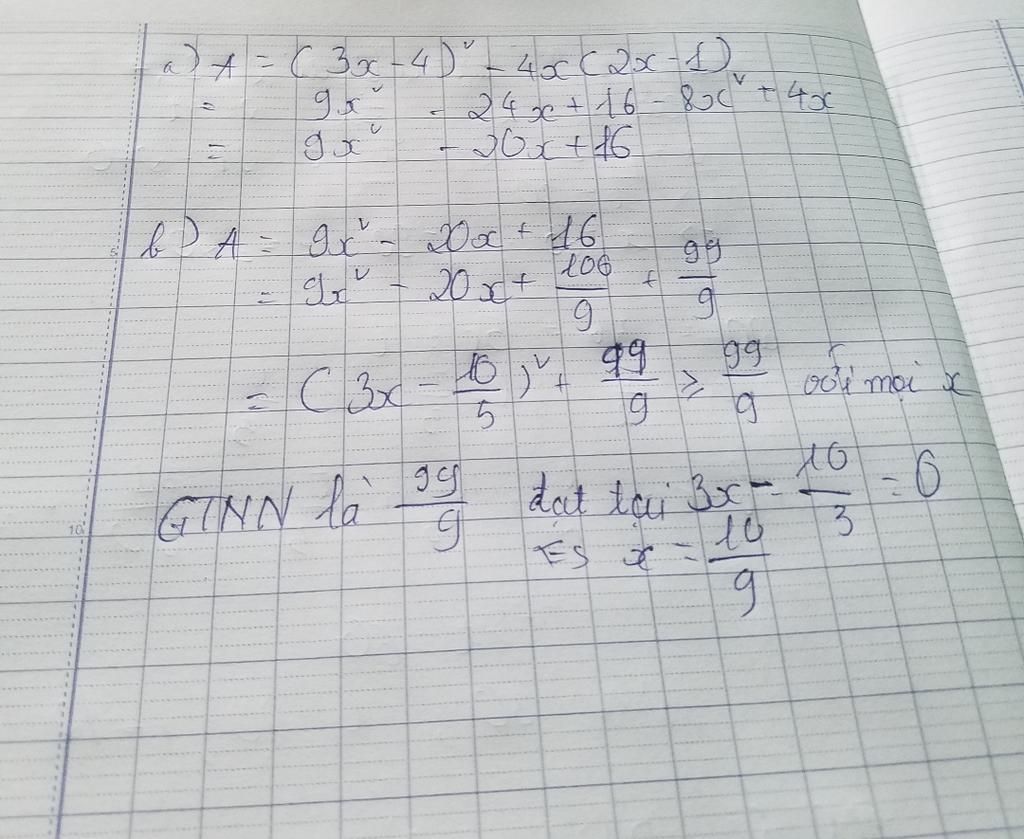 a) A = (3x - 4)² - 4x(2x - 1)
= 9x² - 24x + 16 - 8x² + 4x
= 9x² - 20x + 16
b) A = 9x² - 20x + 16
= 9x² - 20x + 100/9 + 99/9
= (3x - 10/5)² + 99/9 ≥ 99/9 với mọi x
GTNN là 99/9 đạt tại 3x - 10/3 = 0
x = 10/9